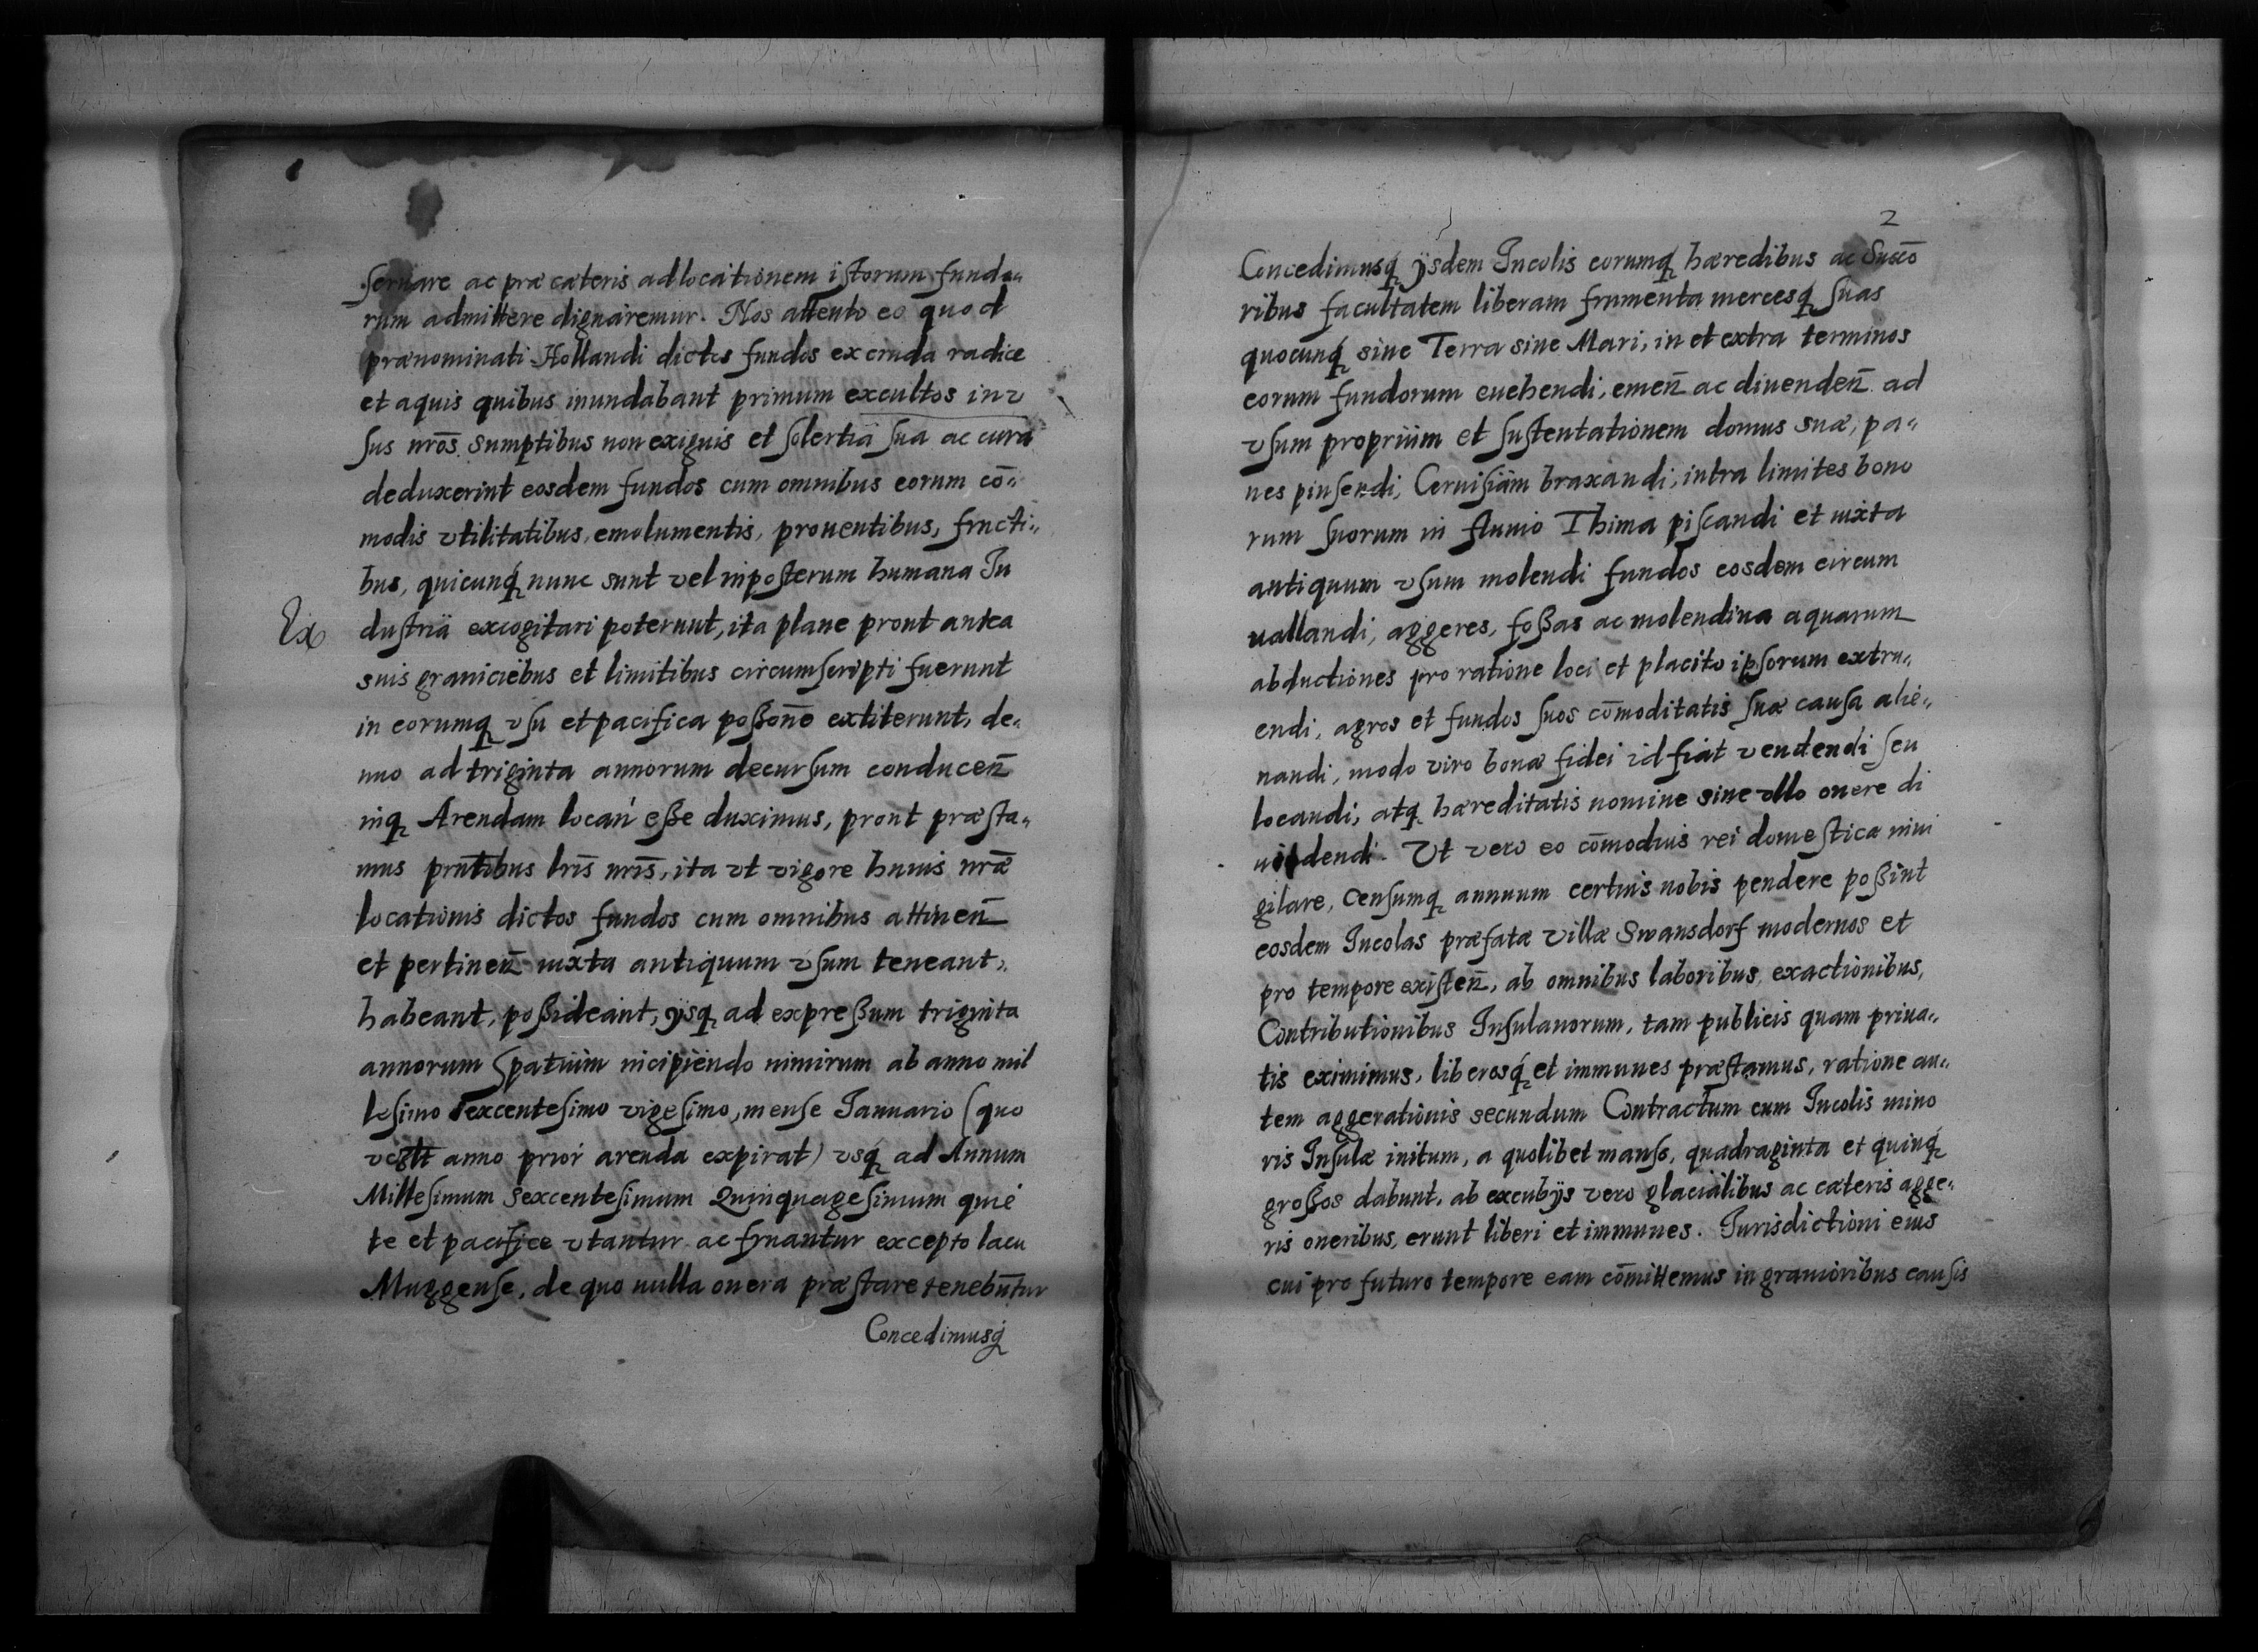 seruare ac præ cæteris ad locationem istorum fundo„
rum admittere dignaremur. Nos attento eo quod
prænominati Hollandi dictos fundos ex cruda radice
et aquis quibus inundabant primum excultos in v
sus nrōs sumptibus non exiguis et solertia sua ac cura
deduxerint eosdem fundos cum omnibus eorum cō„
modis vtilitatibus, emolumentis, prouentibus, fructi„
bus, quicunq́ꝫ nunc sunt vel inposterum humana In
Ex
dustria excogitari poterunt, ita plane prout antea
suis graniciebus et limitibus circumscripti fuerunt
in eorumqꝫ vsu et pacifica poßone extiterunt, de„
nuo ad triginta annorum decursum conducen̄
inqꝫ Arendam locan̄ eße duximus, prout præsta„
mus pn̄tibus lris̄ nris̄, ita vt vigore huius nrǣ
locationis dictos fundos cum omnibus attinen̄
et pertinen̄ iuxta antiquum vsum teneant,
habeant, poßideant, ijsqꝫ ad expreßum triginta
annorum spatium incipiendo nimirum ab anno mil
lesimo sexcentesimo vigesimo, mense Januario (quo
anno prior arenda expirat) vsq́ꝫ ad Annum
Millesimum Sexcentesimum Quinquagesimum quie
te et pacifice vtantur ac fruantur excepto lacu
Muggense, de quo nulla onera præstare tenebūtur
Concedimusq́ꝫ
2
Concedimusq́ꝫ ijsdem Incolis eorumqꝫ hæredibus ac Succō
ribus facultatem liberam frumenta mercesq́ꝫ suas
quocunq́ꝫ siue Terra siue Mari, in et extra terminos
eorum fundorum euehendi, emen̄ ac diuenden̄ ad
vsum proprium et sustentationem domus suæ, pa„
nes pinsendi, Ceruisiam braxandi, intra limites bono
rum suorum in fluuio Thima piscandi et iuxta
antiquum vsum molendi fundos eosdem circum
uallandi, aggeres, foßas ac molendina aquarum
abductiones pro ratione loci et placito ipsorum extru„
endi, agros et fundos suos cōmoditatis suæ causa alie„
nandi, modo viro bonæ fidei id fiat vendendi seu
locandi, atqꝫ hæreditatis nomine sine vllo onere di
uidendi. Vt vero eo cōmodius rei domesticæ inui
gilare, censumqꝫ annuum certius nobis pendere poßint
eosdem Incolas præfatæ villæ Swansdorf modernos et
pro tempore existen̄, ab omnibus laboribus, exactionibus,
Contributionibus Insulanorum, tam publicis quam priua„
tis eximimus, liberosq́ꝫ et immunes præstamus, ratione au„
tem aggerationis secundum Contractum cum Incolis mino
ris Insulæ initum, a quolibet manso, quadraginta et quinq́ꝫ
großos dabunt, ab excubijs vero glacialibus ac cæteris agge„
ris oneribus, erunt liberi et immunes. Jurisdictioni eius
cui pro futuro tempore eam cōmittemus in grauioribus causis